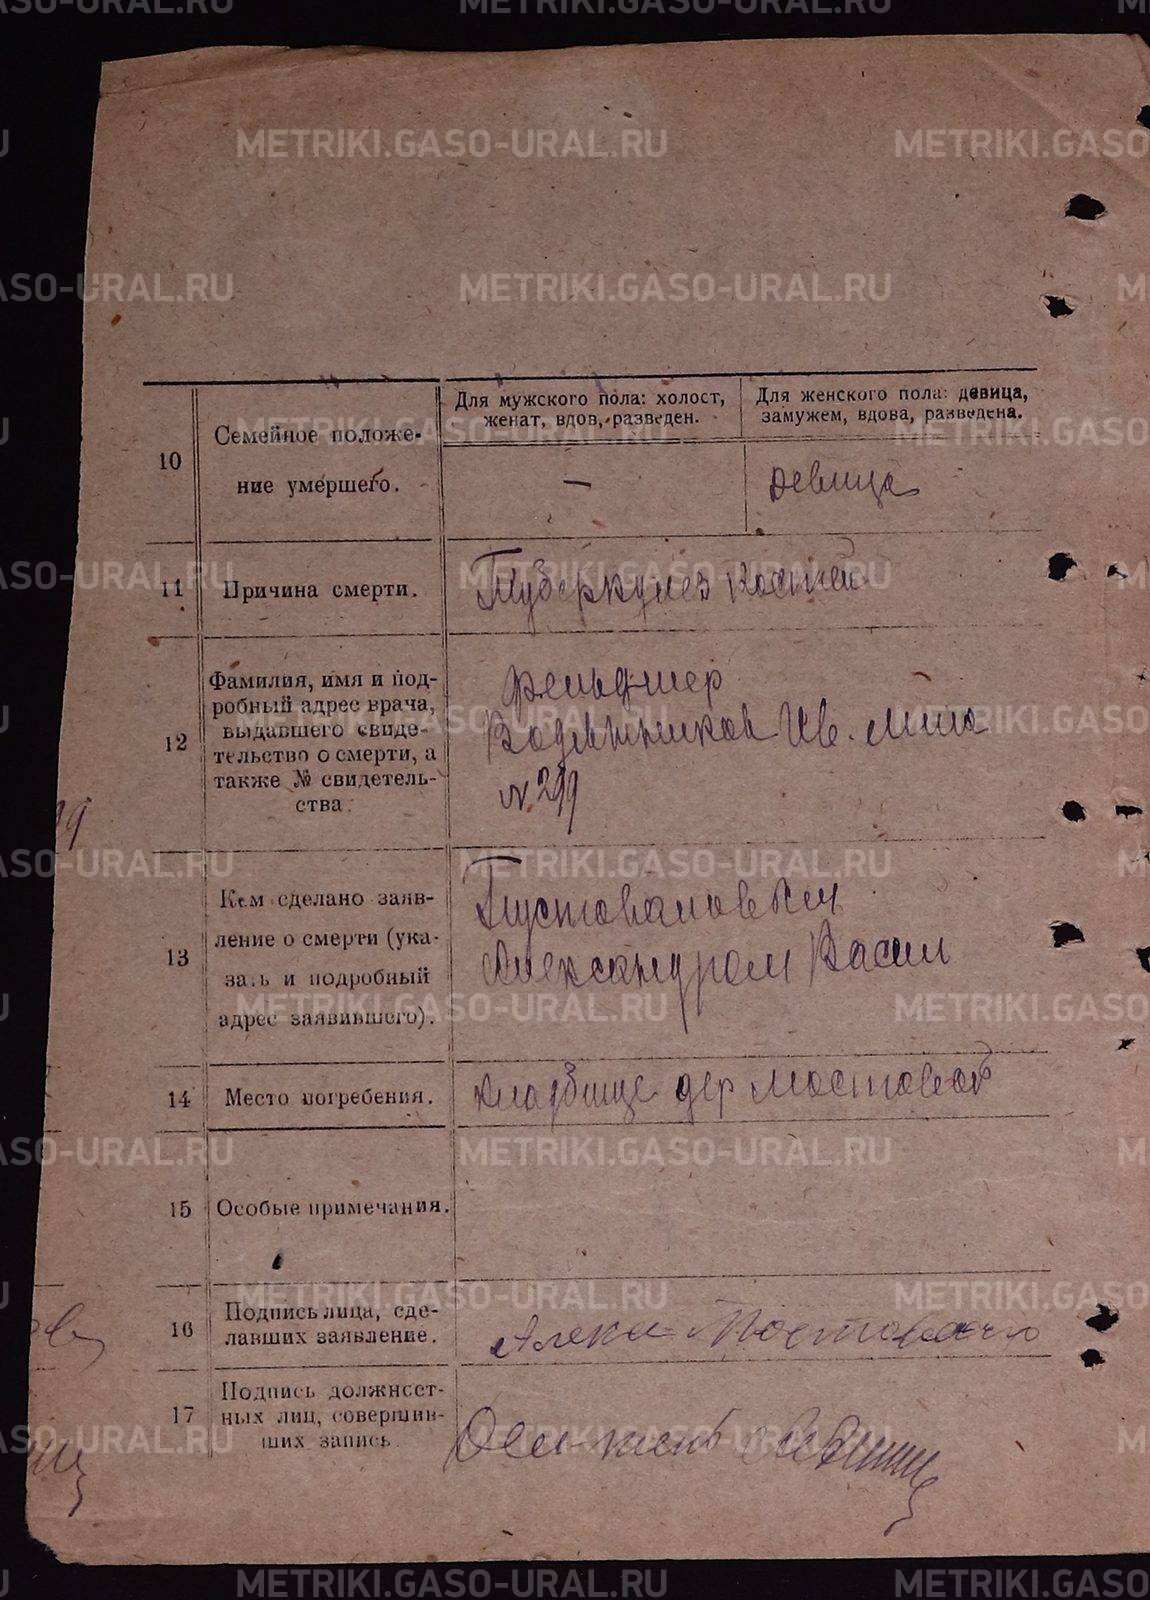 10
Семейное положе-
ние умершего.
Для мужского пола: холост,
женат, вдов, разведен.
Для женского пола: девица,
замужем, вдова, разведена.
—
девица
11
Причина смерти.
Туберкулез костей
12
Фамилия, имя и под-
робный адрес врача,
выдавшего свиде-
тельство о смерти, а
также № свидетель-
ства.
фельдшер
Ив.
№ 299
13
Кем сделано заяв-
ление о смерти (ука-
зать и подробный
адрес заявившего).
Пустоваловым
Александром Васил
14
Место погребения.
кладбище дер Мостовой
15
Особые примечания.
16
Подпись лица, сде-
лавших заявление.
17
Подпись должност-
ных лиц, совершив-
ших запись.
METRIKI.GASO-URAL.RU